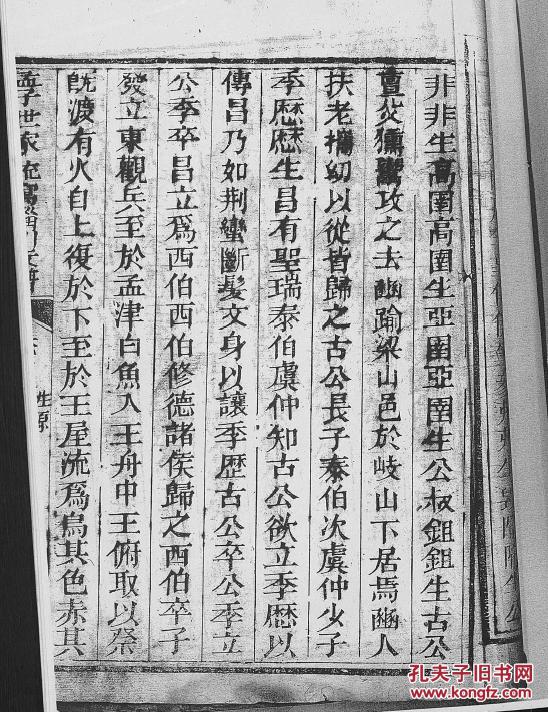 非非生高圉高圉生亞圉亞圉生公叔鉏鉏生古公
亶父獯鬻攻之去豳踰梁山邑於岐山下居焉豳人
扶老攜幼以從皆歸之古公長子泰伯次虞仲少子
季歷歷生昌有聖瑞泰伯虞仲知古公欲立季歷以
傳昌乃如荆蠻斷髮文身以讓季歷古公卒公季立
公季卒昌立爲西伯西伯修德諸侯歸之西伯卒子
發立東觀兵至於孟津白魚入王舟中王俯取以祭
既渡有火自上復於下至於王屋流爲烏其色赤其
世家
姓源
孔夫子旧书网
www.kongfz.com